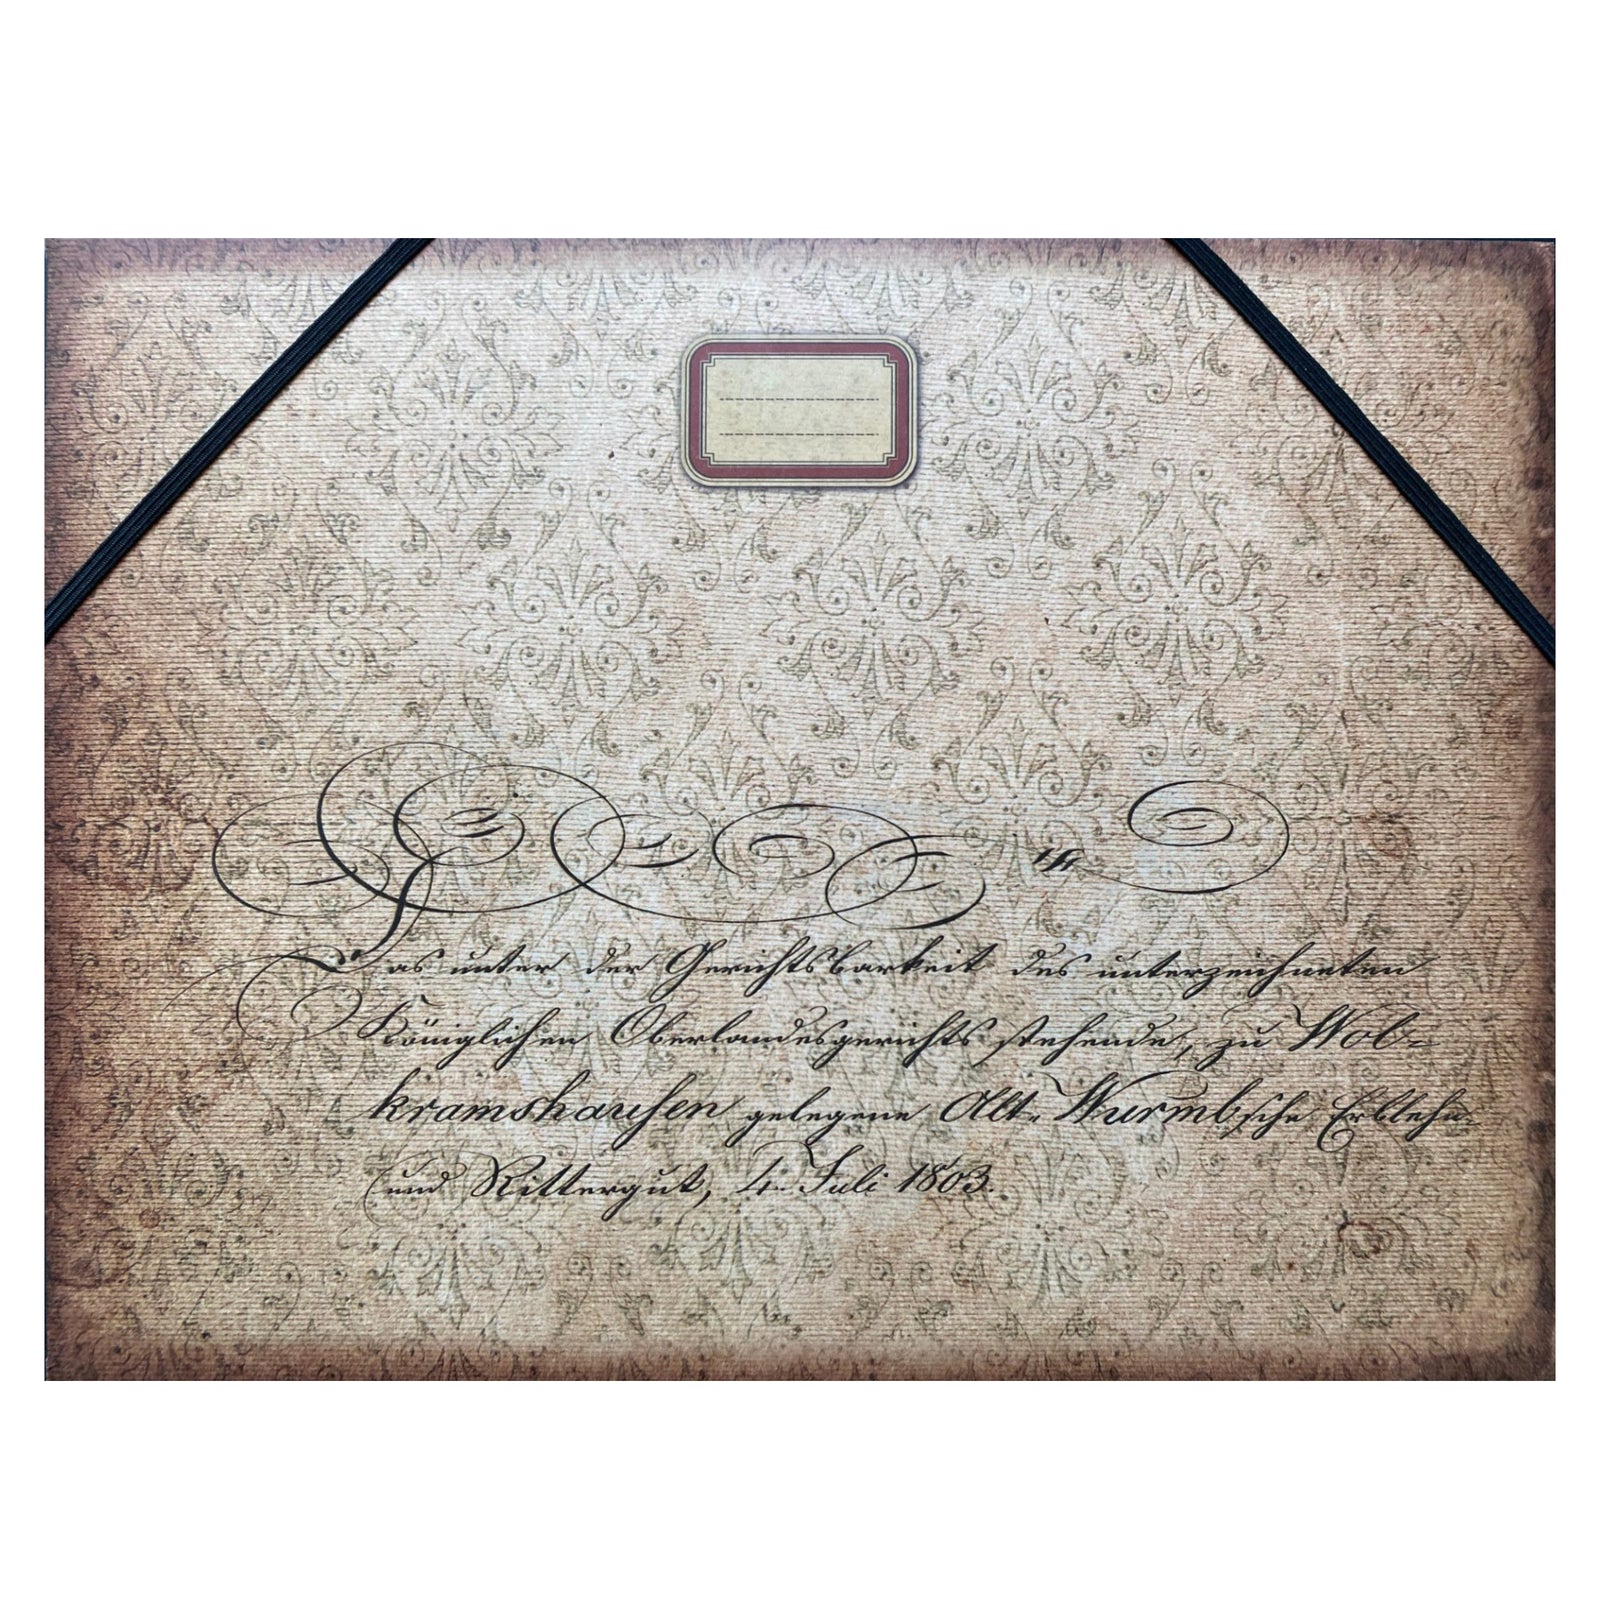 Das unter der Gerichtsbarkeit des unterzeichneten
Königlichen Oberlandesgerichts stehende, zu Wol-
kramshausen gelegene Alt-Wurmbsche Erblehn-
und Rittergut, 4. Juli 1803.